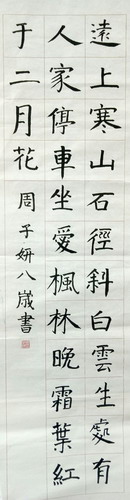 遠上寒山石徑斜白雲生處有
人家停車坐愛楓林晚霜葉紅
于二月花周子妍八歲書